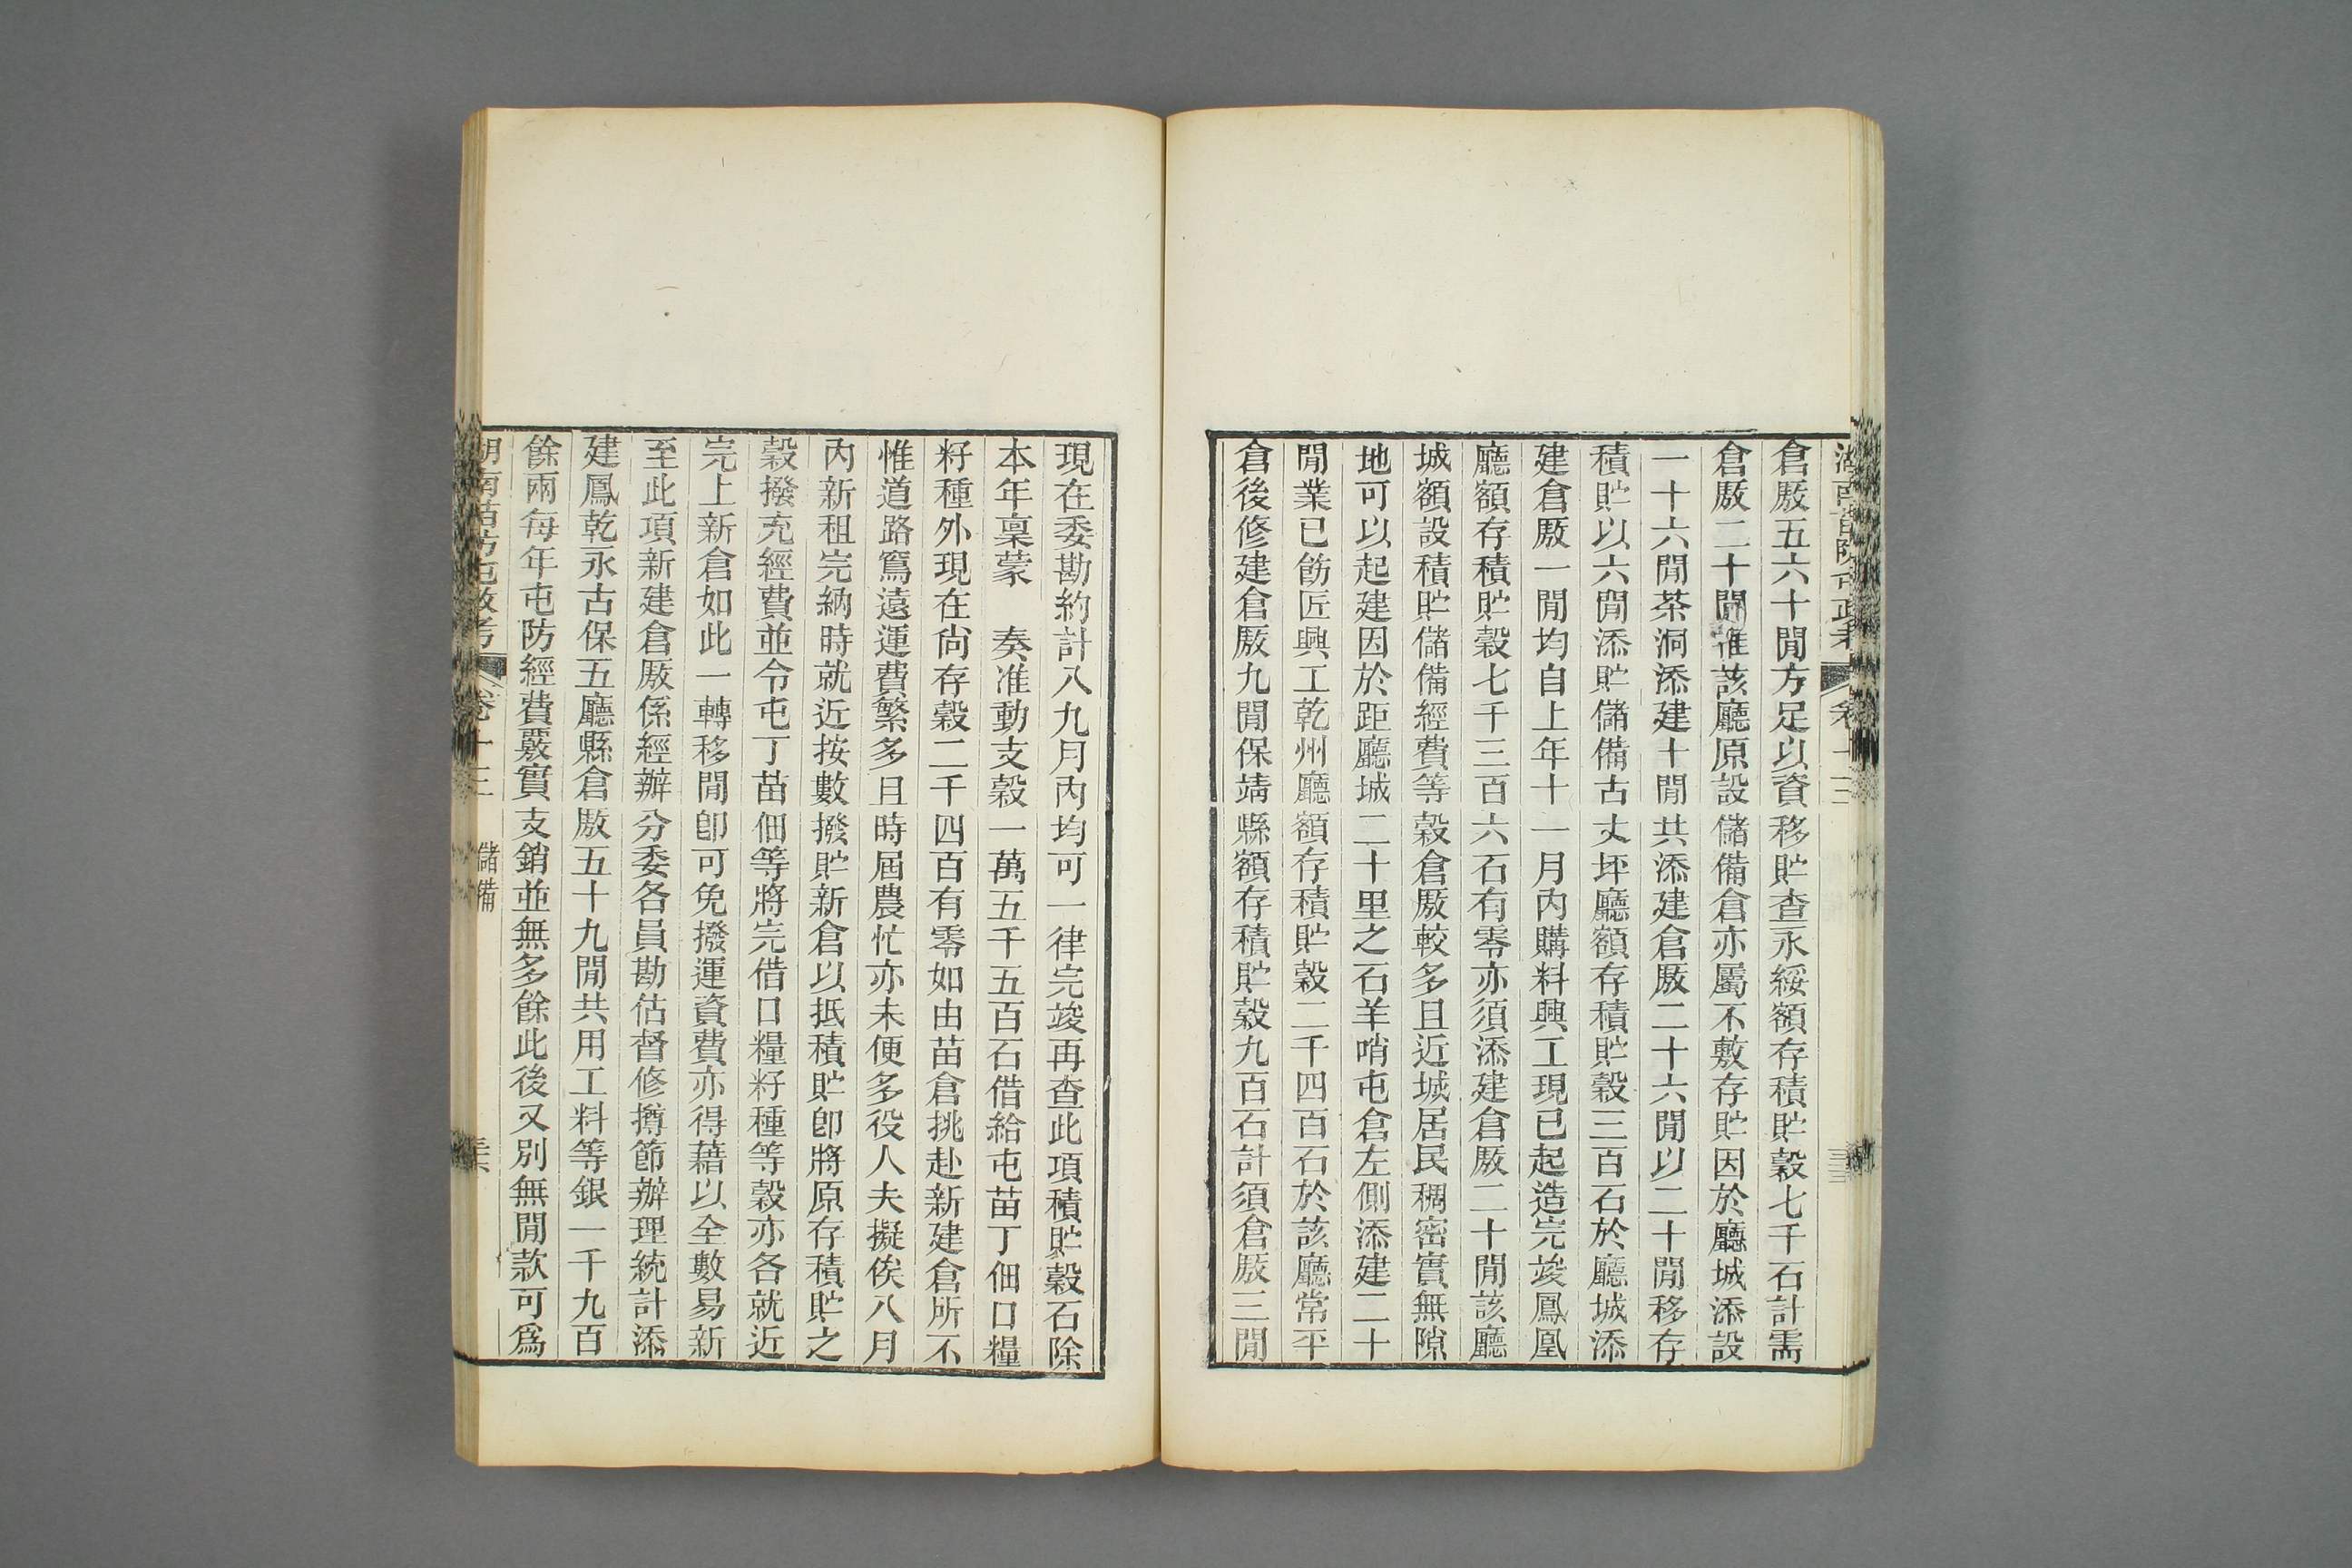 倉厫五六十閒方足以資移貯查永綏額存積貯穀七千石計需
倉厫二十閒惟該廳原設儲備倉亦屬不敷存貯因於廳城添設
一十六閒茶洞添建十閒共添建倉厫二十六閒以二十閒移存
積貯以六閒添貯儲備古丈坪廳額存積貯穀三百石於廳城添
建倉厫一閒均自上年十一月內購料興工現已起造完竣鳳凰
廳額存積貯穀七千三百六石有零亦須添建倉厫二十閒該廳
城額設積貯儲備經費等穀倉厫較多且近城居民稠密實無隙
地可以起建因於距廳城二十里之石羊哨屯倉左側添建二十
閒業已飭匠興工乾州廳額存積貯穀二千四百石於該廳常平
倉後修建倉厫九閒保靖縣額存積貯穀九百石計須倉厫三閒
現在委勘約計八九月內均可一律完竣再查此項積貯穀石除
本年稟蒙　奏准動支穀一萬五千五百石借給屯苗丁佃口糧
籽種外現在尙存穀二千四百有零如由苗倉挑赴新建倉所不
惟道路窵遠運費繁多且時屆農忙亦未便多役人夫擬俟八月
內新租完納時就近按數撥貯新倉以抵積貯卽將原存積貯之
穀撥充經費並令屯丁苗佃等將完借口糧籽種等穀亦各就近
完上新倉如此一轉移閒卽可免撥運資費亦得藉以全數易新
至此項新建倉厫係經辦分委各員勘估督修撙節辦理統計添
建鳳乾永古保五廳縣倉厫五十九閒共用工料等銀一千九百
餘兩每年屯防經費覈實支銷並無多餘此後又別無閒款可爲
湖南苗防屯政考 卷十三 儲備